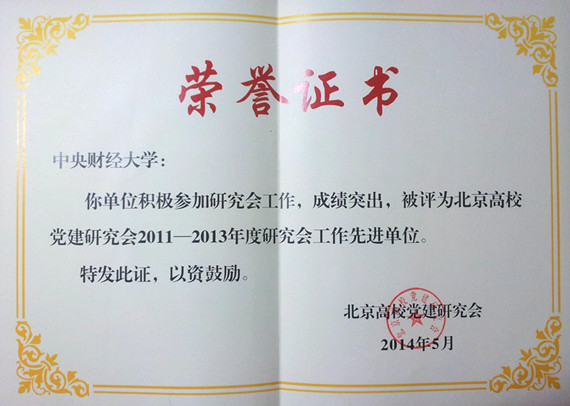 荣誉证书
中央财经大学：
你单位积极参加研究会工作，成绩突出，被评为北京高校
党建研究会2011—2013年度研究会工作先进单位。
特发此证，以资鼓励。
北京高校党建研究会
2014年5月